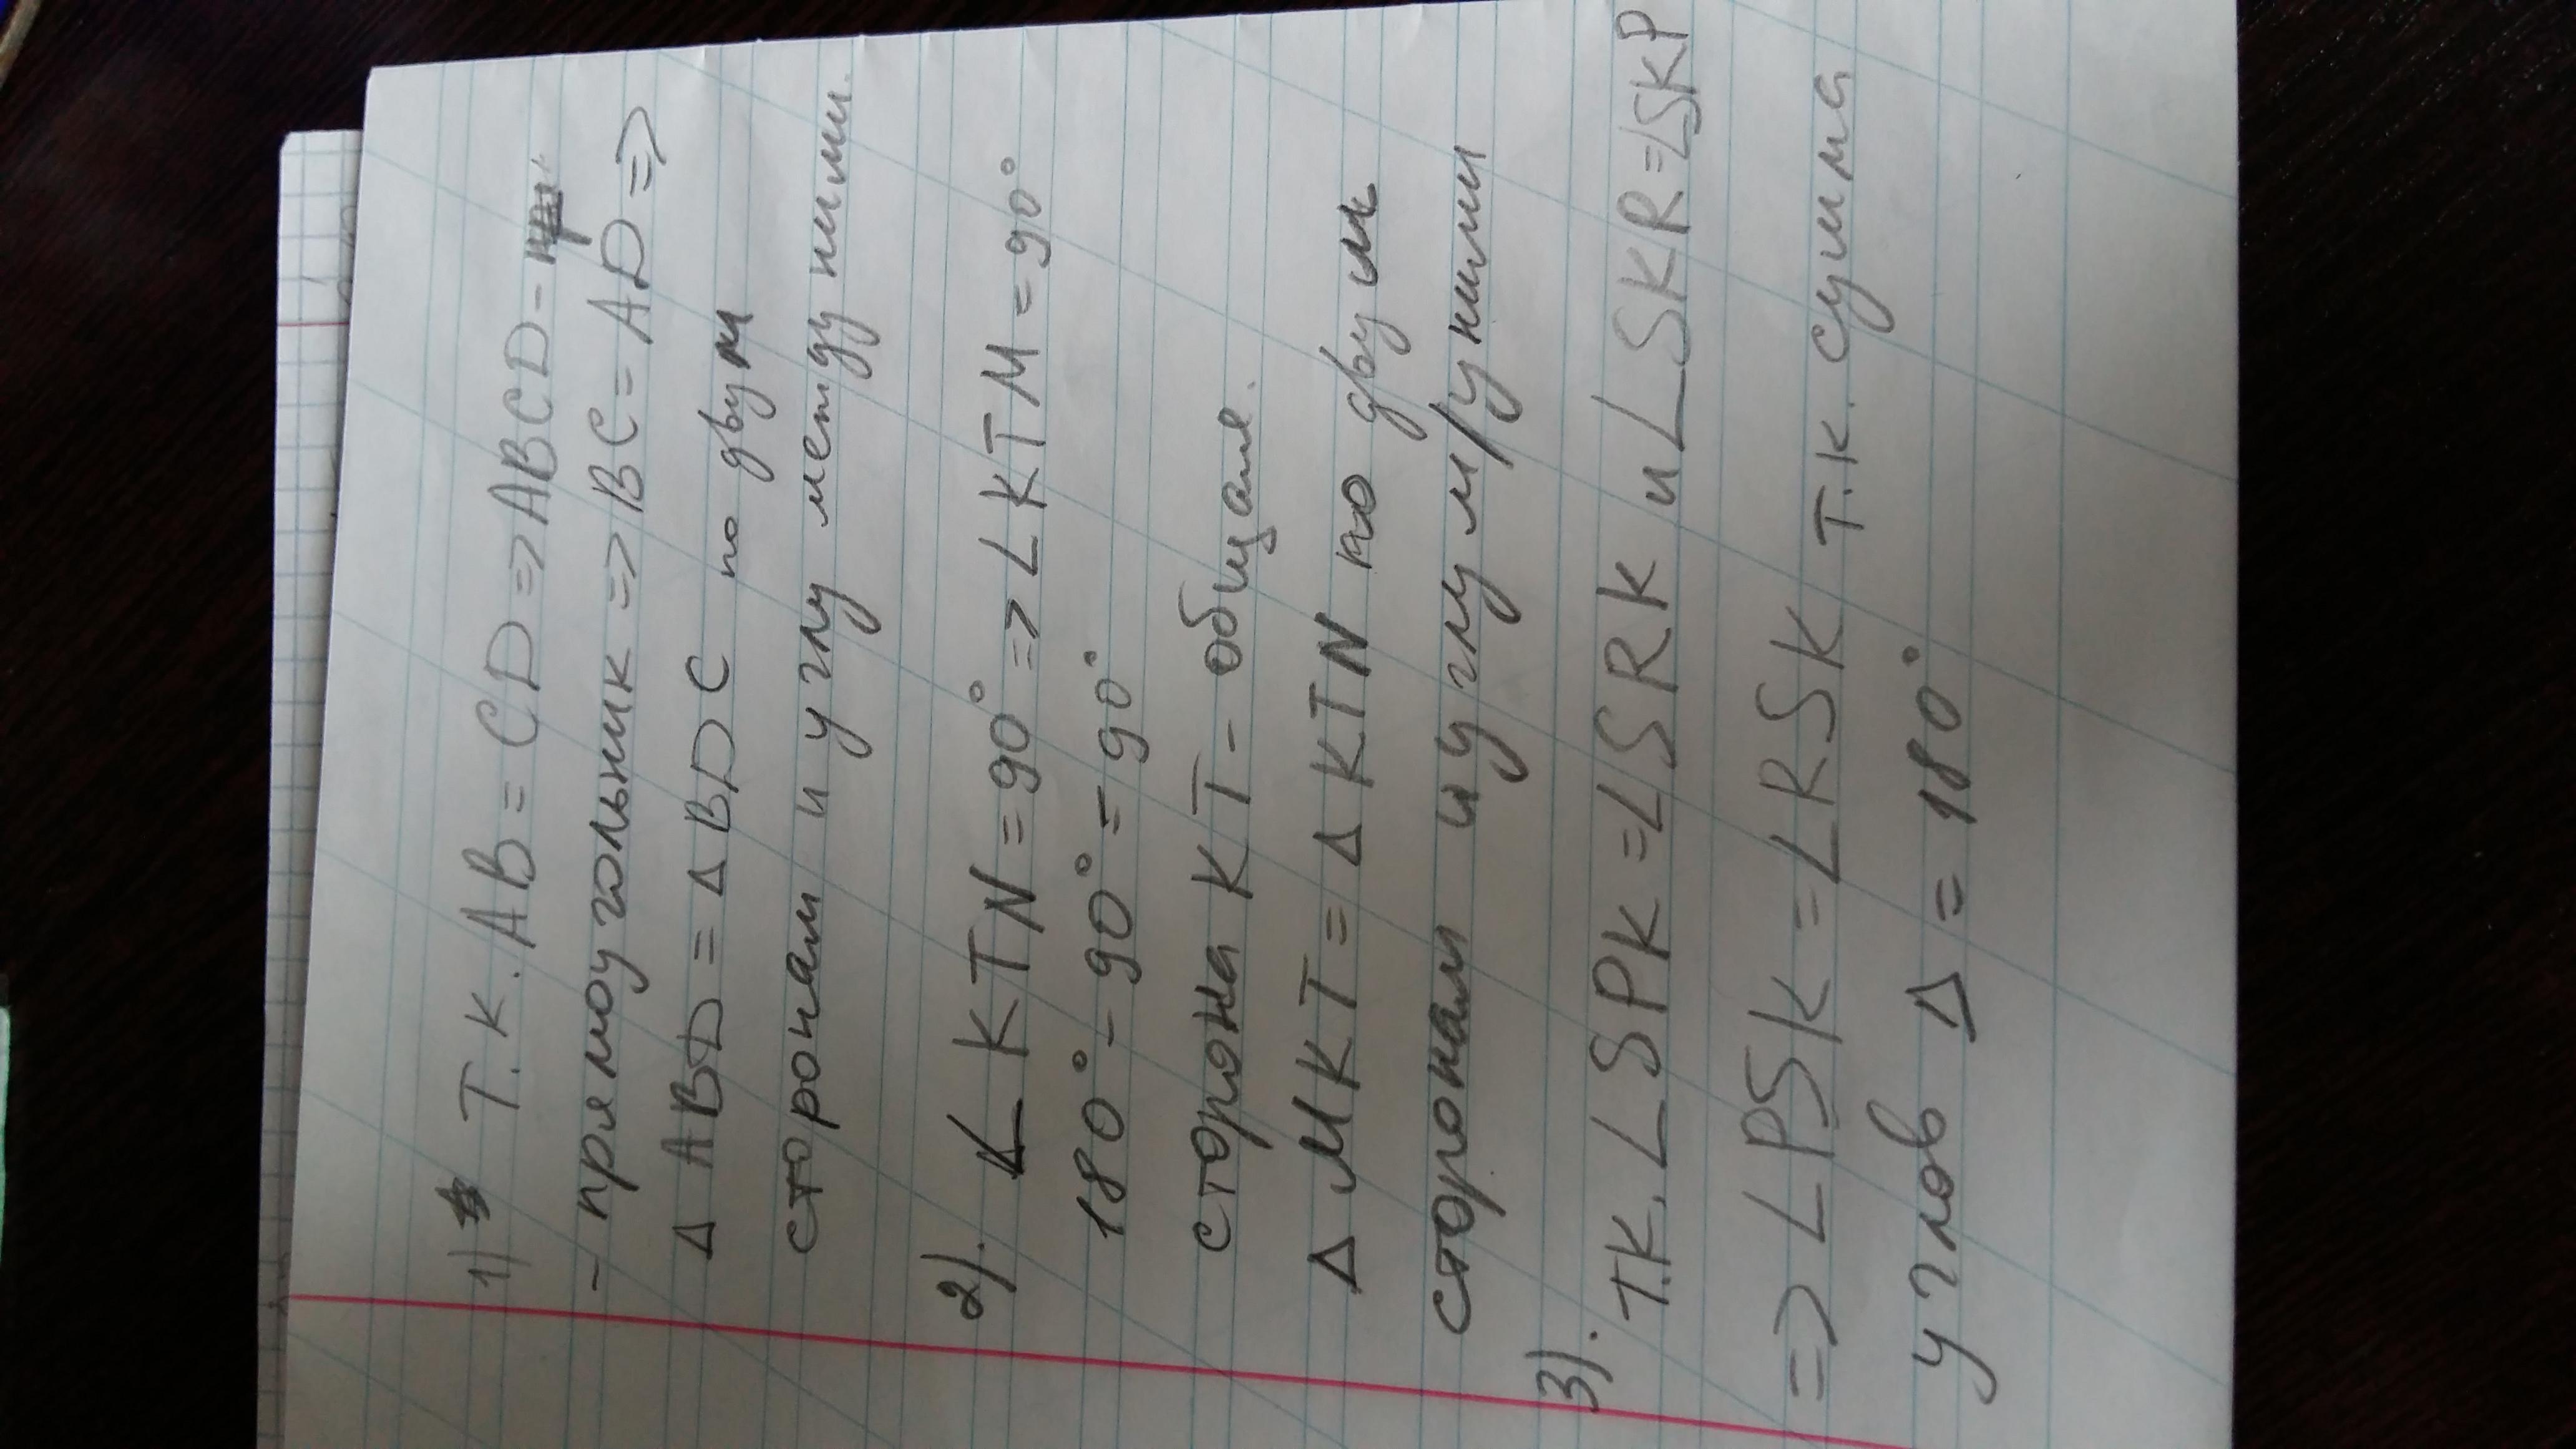 1) Т.К. AB = CD => ABCD -
- прямоугольник => BC = AD =>
Δ ABD = Δ BDC по двум
сторонам и углу между ними.
2). ∠KTN = 90° => ∠KTM = 90°
180° - 90° = 90°
сторона KT - общая.
Δ MKT = Δ KTN по двум
сторонам и углу м/у ними
3). Т.К. ∠SPK = ∠SRK и ∠SKR = ∠SKP
=> ∠PSK = ∠RSK т.к. сумма
углов Δ = 180°